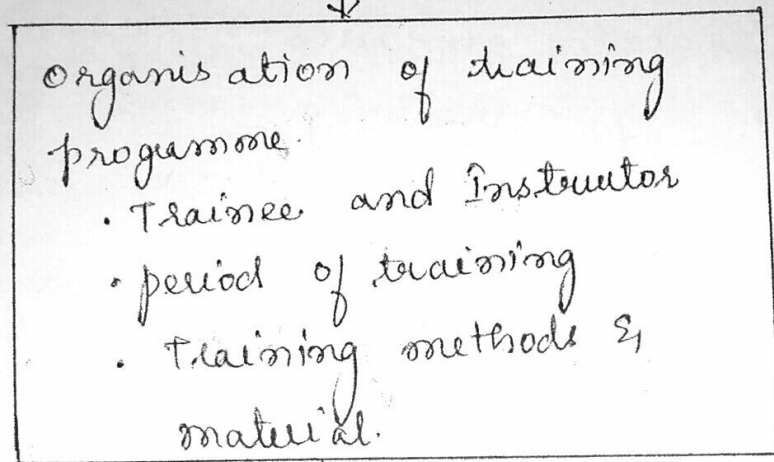 Organisation of training
programme.
• Trainee and Instructor
• period of training
• Training methods &
material.